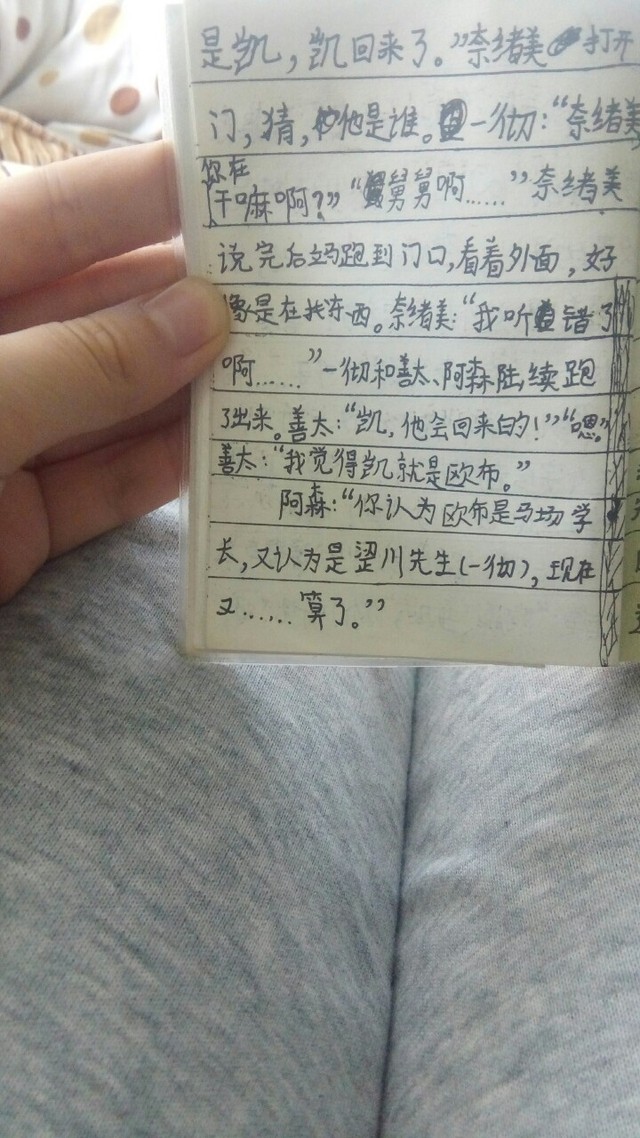 是凯，凯回来了。”奈绪美打开
门，猜，他是谁。一彻：“奈绪美
你在
干嘛啊？”“舅舅啊……”奈绪美
说完后立马跑到门口，看着外面，好
像是在找东西。奈绪美：“我听错了
啊……”一彻和善太、阿森陆续跑
了出来。善太：“凯，他会回来的！”“嗯。”
善太：“我觉得凯就是欧布。”
阿森：“你认为欧布是马场学
长，又认为是涩川先生(一彻)，现在
又……算了。”